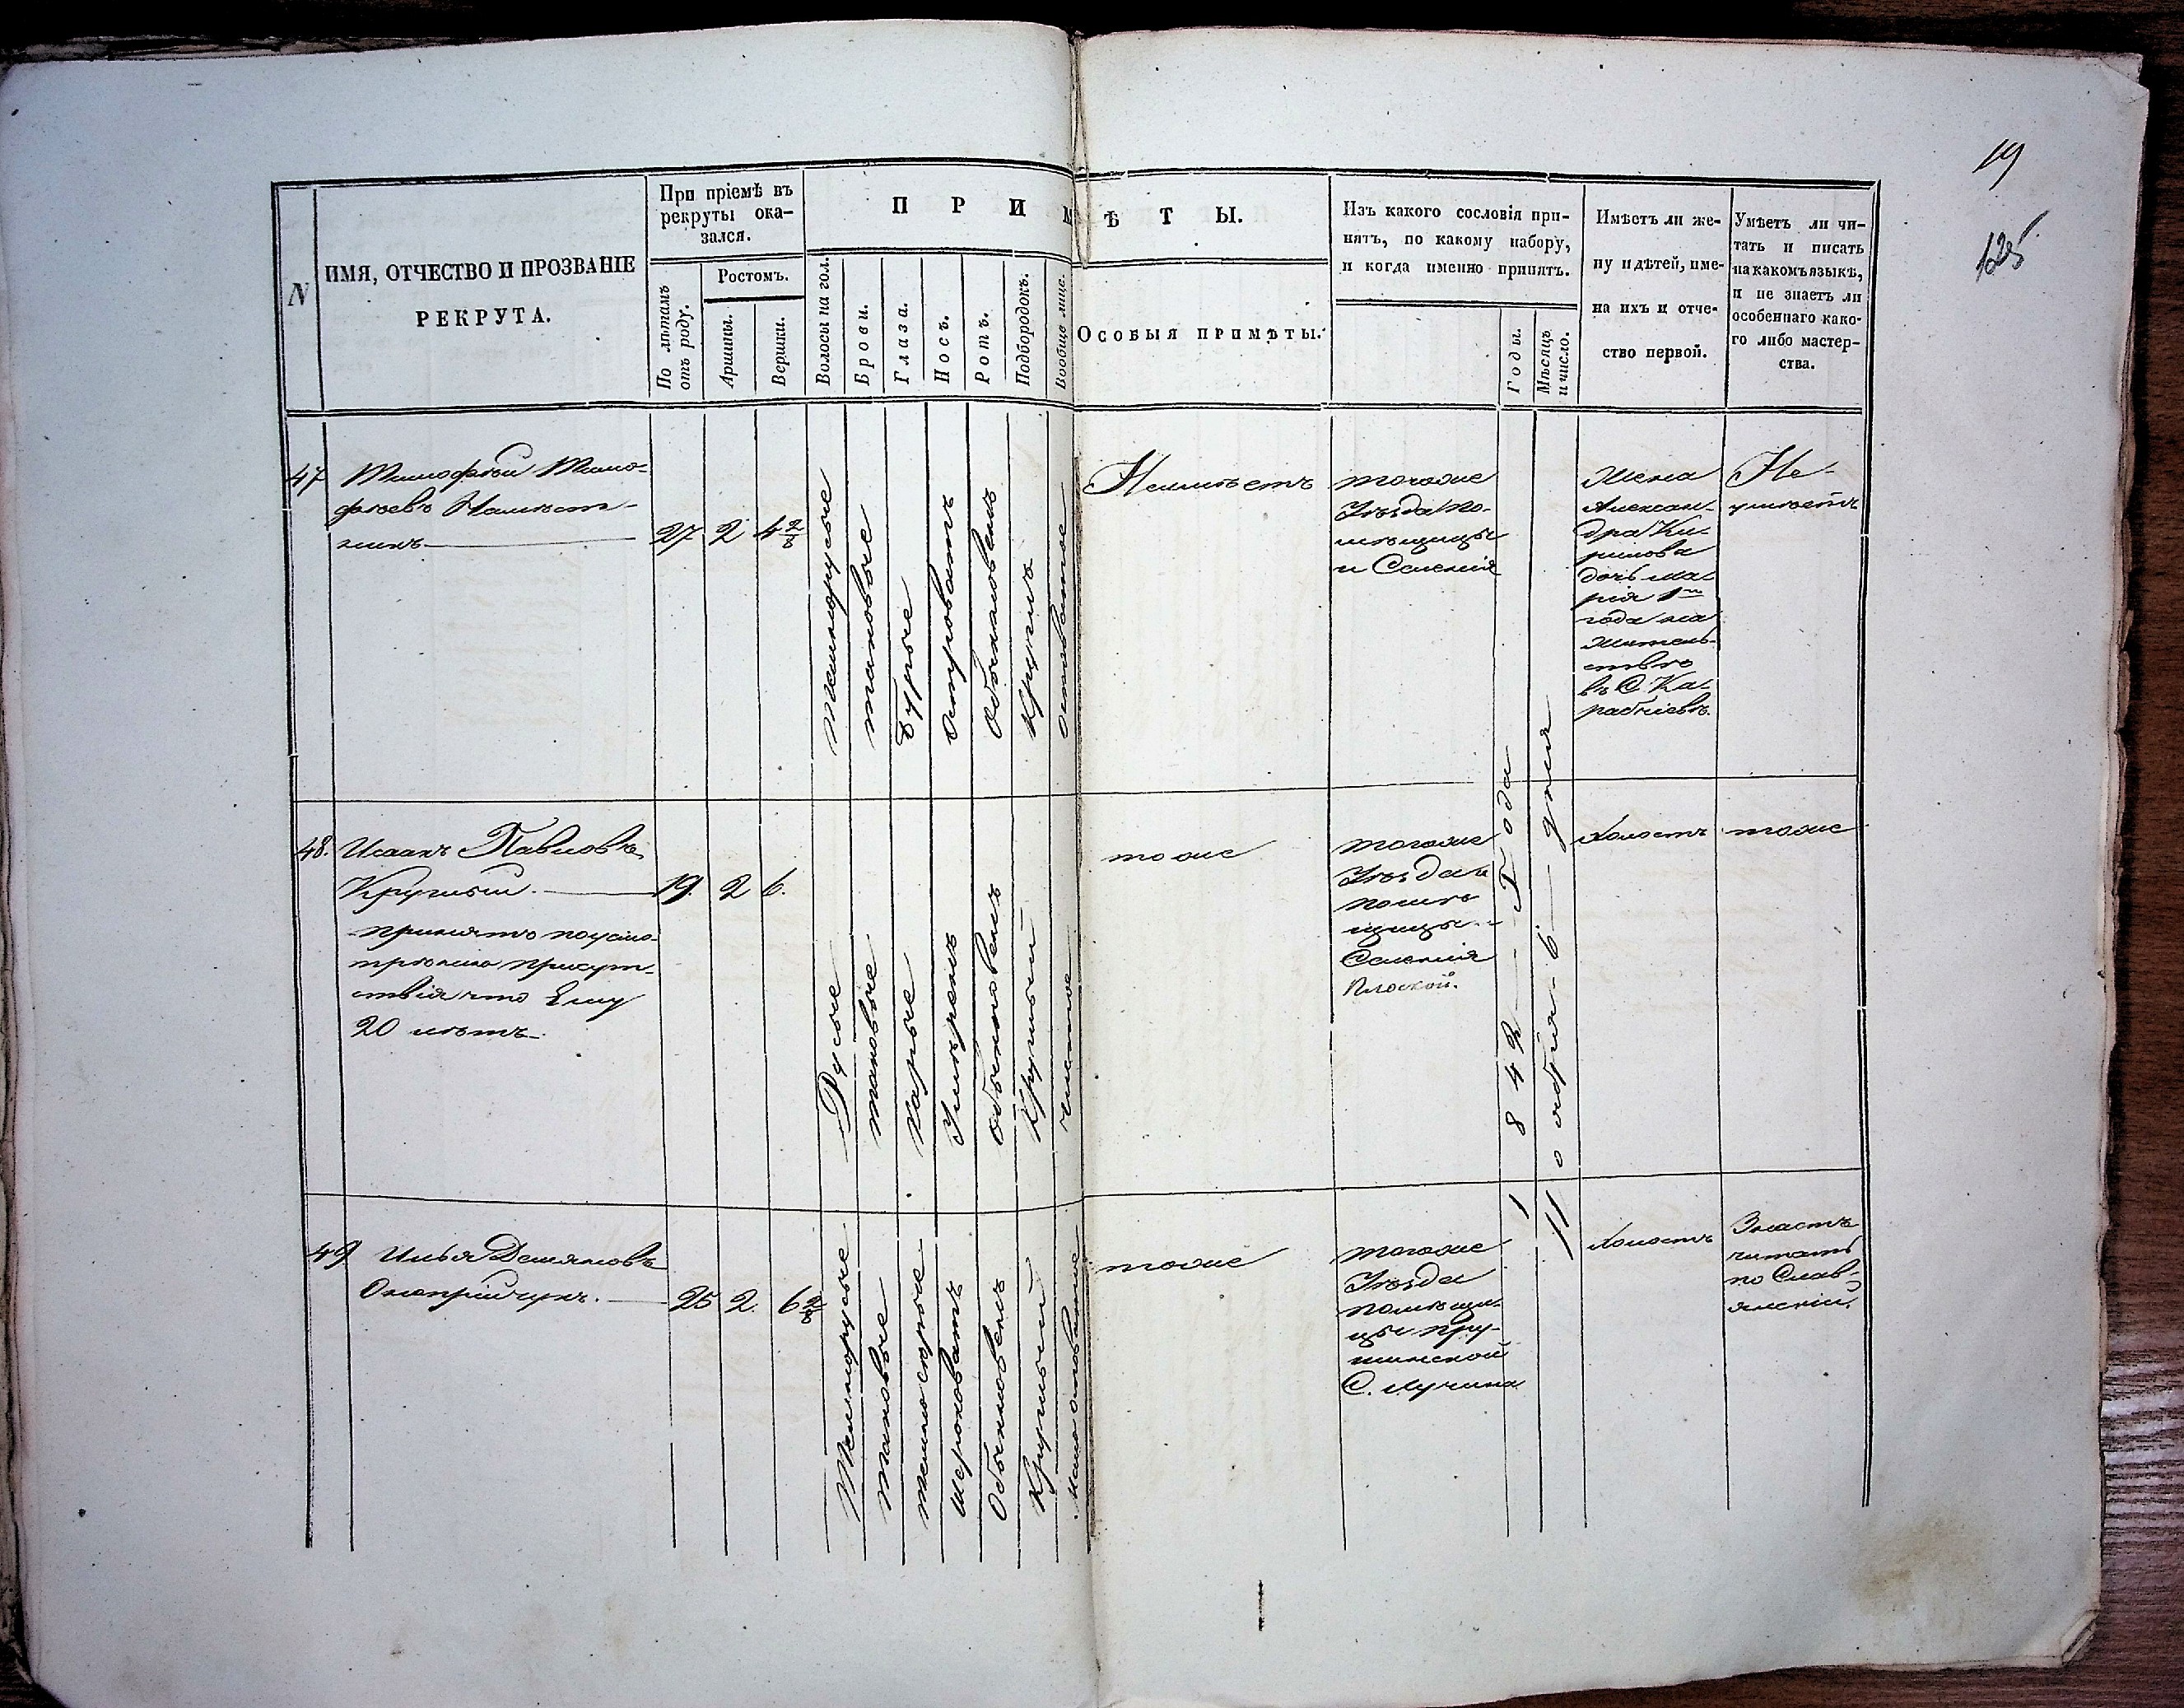 19
125
N
ИМЯ, ОТЧЕСТВО И ПРОЗВАНІЕ
РЕКРУТА.
При пріемѣ въ
рекруты ока-
зался.
По лѣтамъ
отъ роду.
Ростомъ.
Аршины.
Вершки.
ПРИМѢТЫ.
Волосы на гол.
Брови.
Глаза.
Носъ.
Ротъ.
Подбородокъ.
Вообще лице.
Особыя примѣты.
Изъ какого сословія при-
нятъ, по какому набору,
и когда именно принятъ.
Годы.
Мѣсяцъ
и число.
Имѣетъ ли же-
ну и дѣтей, име-
на ихъ и отче-
ство первой.
Умѣетъ ли чи-
тать и писать
на какомъ языкѣ,
и не знаетъ ли
особеннаго како-
го либо мастер-
ства.
47
Тимофѣй Тимо-
фѣевъ
27
2
4 2/8
Темнорусые
таковые
Бурые
Обыкновенъ
Круглъ
Неимѣетъ
тогоже
Уѣзда По-
мѣщицы
и Селенія
Жена
Алексан-
дра Ки-
рилова
дочь Ма-
рія 1го
года на
Житель-
ствѣ
въ С. Ка-
Не-
умѣетъ
48.
Исаакъ Павловъ
Круглый.
принятъ поусмо-
трѣнію присут-
ствія что Ему
20 лѣтъ.
19.
2
6.
Русые
таковые
Карые
Умѣренъ
Обыкновенъ
Круглый
чистое
тоже
тогоже
Уѣзда и
помѣ-
щицы
Селенія
Плоской.
1842 Года
11 оября 6 дня
Холостъ
тоже
49
Илья Демяновъ
25
2.
6 2/8
Темнорусые
таковые
темносѣрые
шероховатъ
Обыкновенъ
Круглый
тоже
тогоже
Уѣзда
помѣщи-
цы Пру-
шинской
С. Лучина
Холостъ
Знаетъ
читать
по Слав-
янскіи.